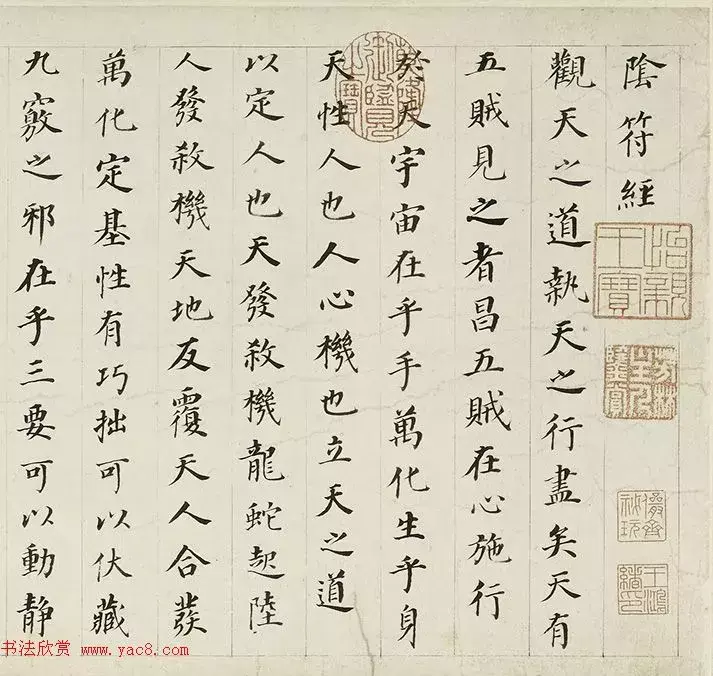 陰符經
觀天之道執天之行盡矣天有
五賊見之者昌五賊在心施行
於天宇宙在乎手萬化生乎身
天性人也人心機也立天之道
以定人也天發殺機龍蛇起陸
人發殺機天地反覆天人合發
萬化定基性有巧拙可以伏藏
九竅之邪在乎三要可以動靜
怡親王寶
书法欣赏 www.yac8.com